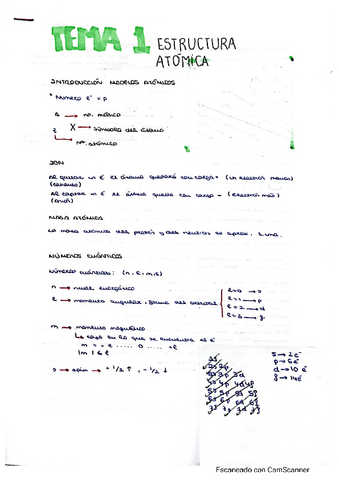 TEMA 1 ESTRUCTURA
ATÓMICA
INTRODUCCIÓN MODELOS ATÓMICOS
* Número e⁻ = p
A → no. másico
X → símbolo del átomo
Z
↳ Nº. atómico
ION
Al quitar un e⁻ el átomo quedará con carga + (un electrón menos)
(catión)
Al captar un e⁻ el átomo queda con carga - (electrón más)
(anión)
MASA ATÓMICA
La masa atómica del protón y del neutrón es aprox. 1 uma.
NÚMEROS CUÁNTICOS
Números cuánticos: (n, l, m, s)
n → nivel energético
l → momento angular, forma del orbital
l=0 → s
l=1 → p
l=2 → d
l=3 → f
m → momento magnético
↳ caja en la que se encuentra el e⁻
m = -l ..... 0 ..... +l
|m| ≤ l
s → spin → +1/2 ↑, -1/2 ↓
s → 2e⁻
p → 6e⁻
d → 10e⁻
f → 14e⁻
Escaneado con CamScanner